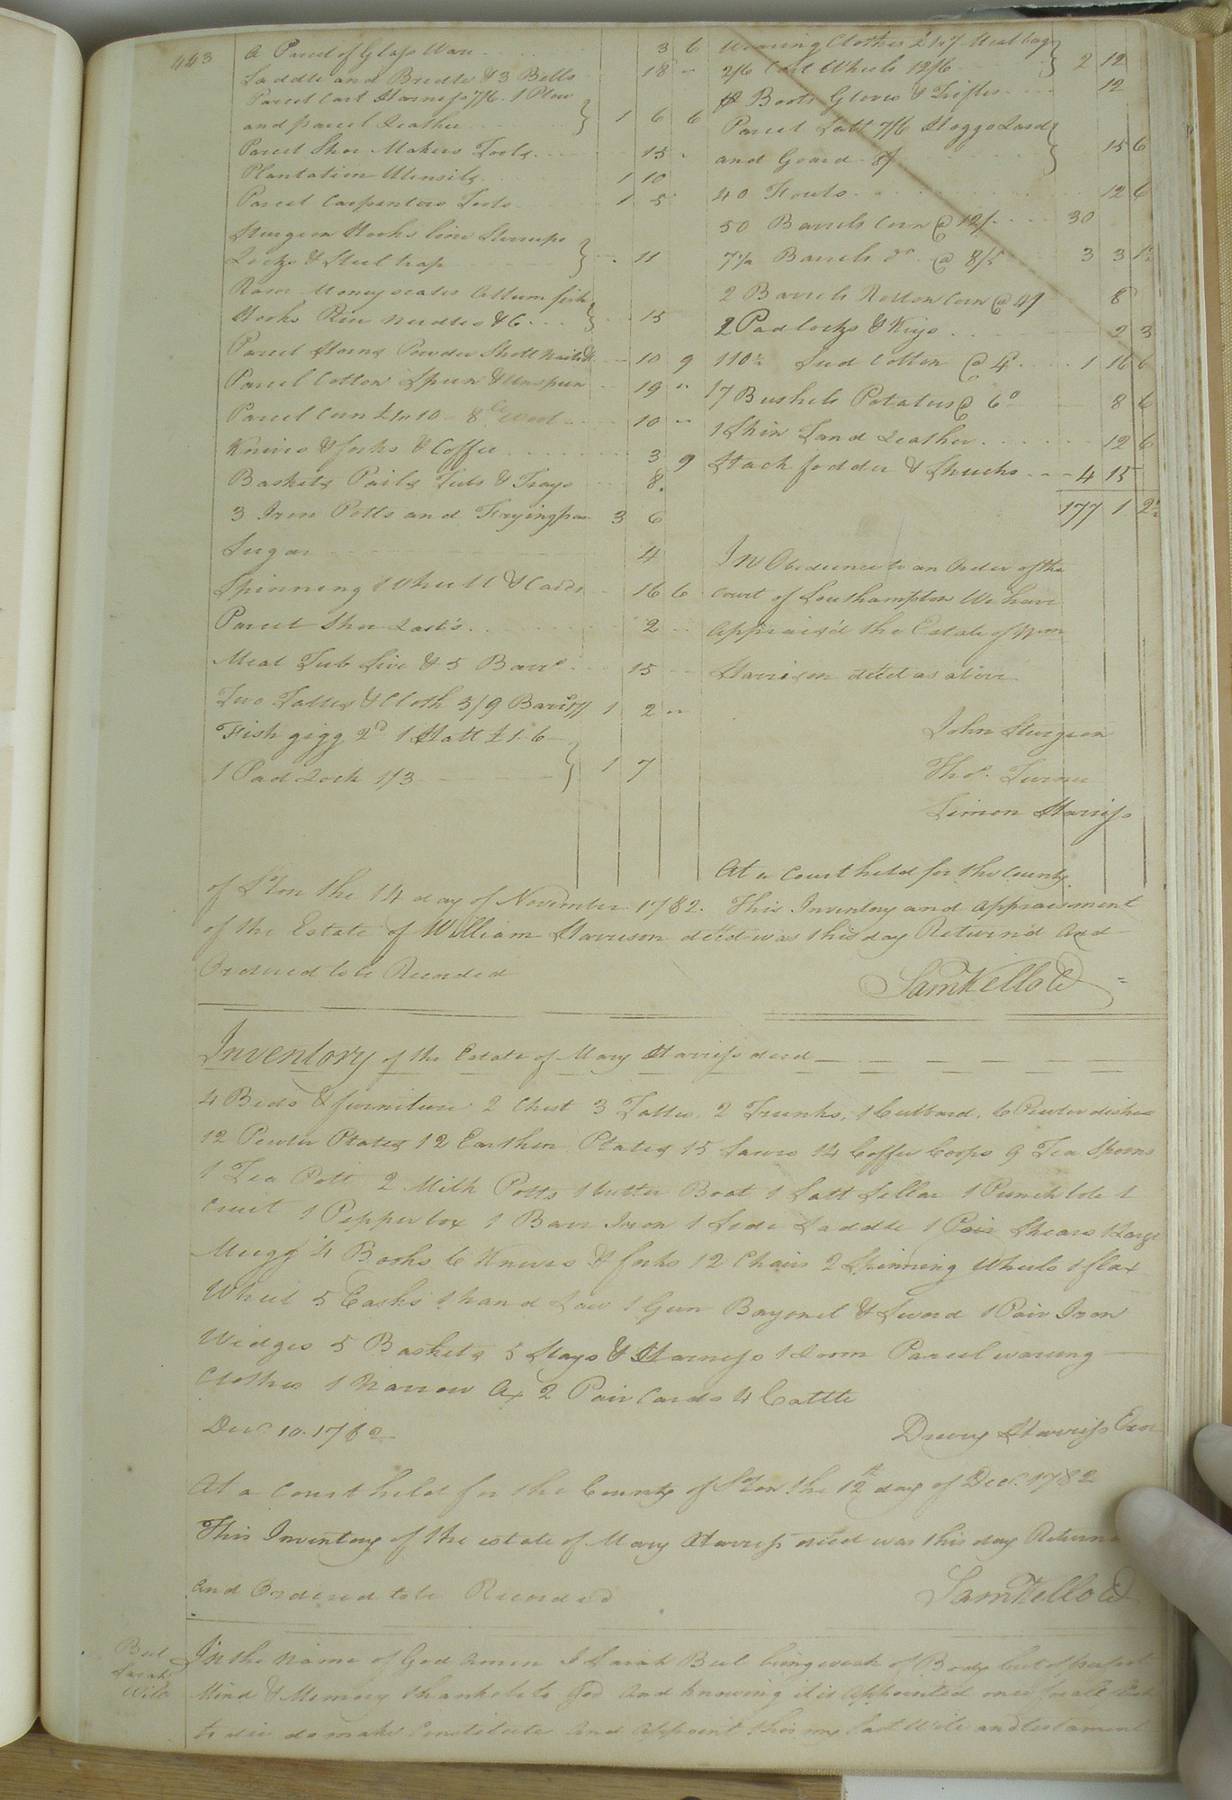 443
A Parcel of Glass Ware 3 6
Saddle and Bridle & 3 Bells 18 "
Parcel Cart Harness 7/6. 1 Plow
and parcel Leather 1 6 6
Parcel Shoe Makers Tools 15 "
Plantation Utensils 1 10
Parcel Carpenters Tools 1 5
Sturgeon Hooks line Sturrups
Locks & Steel trap 11
Money scales fish
Hooks needles &C 15
Parcel Horns Powder Shott 10 9
Parcel Cotton Spun & Unspun 19 "
Parcel 10 "
Knives & forks & Coffee 3 9
Baskets Pails Tubs & Trays 8
3 Iron Potts and Fryingpan 3 6
Sugar 4
Spinning Wheel & Cards 16 6
Parcel Shoe Last's 2 "
Meat Tub & 5 Barrs 15 "
Two Tables & Cloth 5/9 1 2 "
Fish gigg 2d 1 Hatt £1.6
1 Pad Lock 1/3 1 7
Wearing Clothes Meal bag
2/6 Cart Wheels 12/6 2 12
Boots Gloves & Trifles 12
Parcel Salt 7/6 Hoggs Lard
and 8/ 15 6
40 12 6
50 Barrels Corn @ 12/ 30
7½ Barrels Do @ 8/5 3 3 1½
2 Barrels Rotton Corn @ 4/ 8
2 Padlocks & Keys 2 3
110 Seed Cotton @ 4d 1 16 6
17 Bushels Potatoes @ 6d 8 6
1 Skin Tand Leather 12 6
Stack fodder & Shucks 4 15
177 1 2½
In Obedience to an Order of the
Court of Southampton We have
Appraised the Estate of Wm
Harrison decd as above
John Sturgeon
Thos. Turner
Simon Harriss
At a Court held for the County
of S°ton the 14 day of November 1782. This Inventory and Appraisment
of the Estate of William Harrison decd was this day Return'd And
Ordered to be Recorded
Saml Kello CC
Inventory of the Estate of Mary Harriss decd
4 Beds & furniture 2 Chest 3 Tables 2 Trunks, 1 Cubbard, 6 Pewter dishes
12 Pewter Plates 12 Earthen Plates 15 4 Coffee Coops 9 Tea Spoons
1 Tea Pott 2 Milk Potts 1 butter Boat 1 Salt Sellar 1 Punch bole 1
Cruit 1 Pepper box 1 Barr Iron 1 Side Saddle 1 Pair Shears 1 Large
Mugg 4 Books 6 Knives & forks 12 Chairs 2 Spinning Wheels 1 flax
Wheel 5 Casks 1 hand Saw 1 Gun Bayonet & Sword 1 Pair Iron
Wedges 5 Baskets 5 Slays & Harness 1 Loom Parcel waring
Clothes 1 Narrow Ax 2 Pair Cards 4 Cattle
Decr 10. 1782
Drury Harriss Exor
At a Court held for the County of S°ton the 12th day of Decr. 1782
This Inventory of the estate of Mary Harriss decd was this day Return
and Ordered to be Recorded
Saml Kello CC
Bel
Sarah
Will
In the Name of God Amen I Sarah Bel being weak of Body but of perfect
Mind & Memory thanks be to God and knowing it is appointed once for all
to die do make Constitute And Appoint this my Last Will and testament